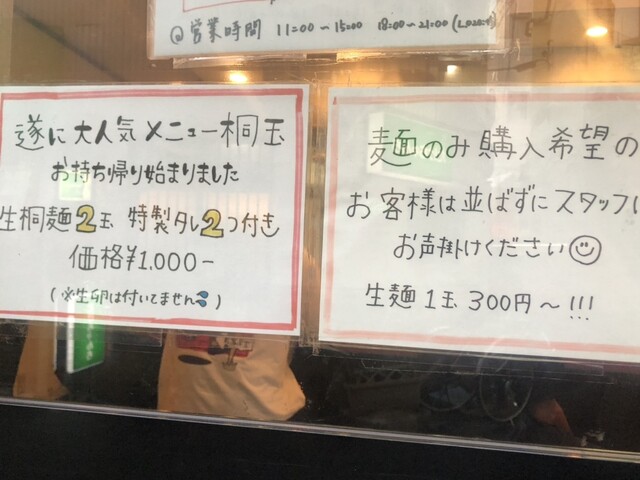 @ 営業時間 11:00〜15:00 18:00〜21:00
遂に大人気メニュー桐玉
お持ち帰り始まりました
生桐麺2玉 特製タレ2つ付き
価格¥1,000-
(※生卵は付いてません💦)
麺のみ購入希望の
お客様は並ばずにスタッフに
お声掛けください☺
生麺 1玉 300円〜!!!